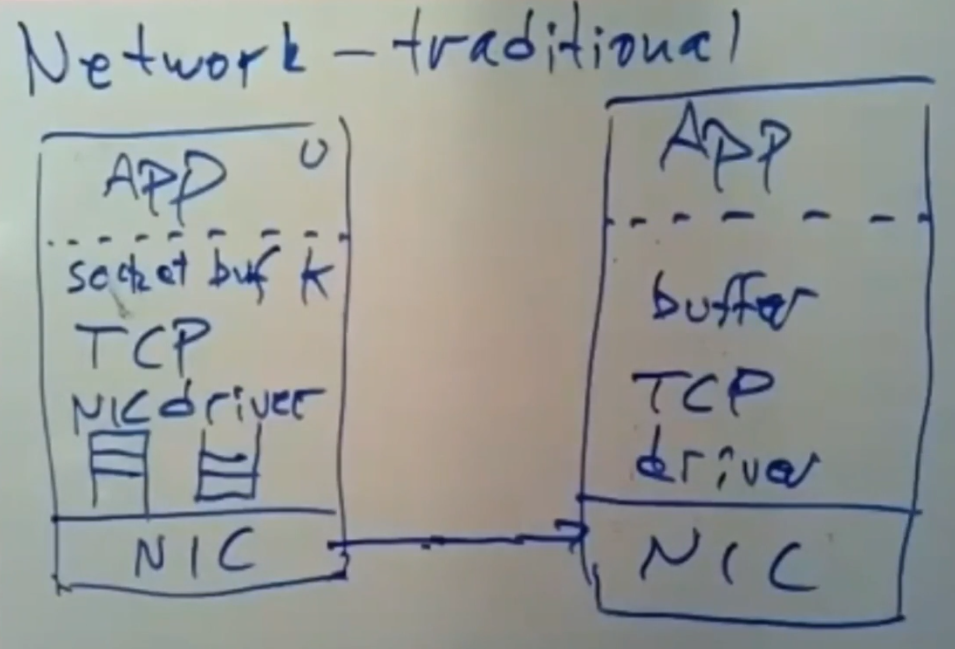 Network - traditional
APP U
socket buf K
TCP
NIC driver
NIC
App
buffer
TCP
driver
NIC